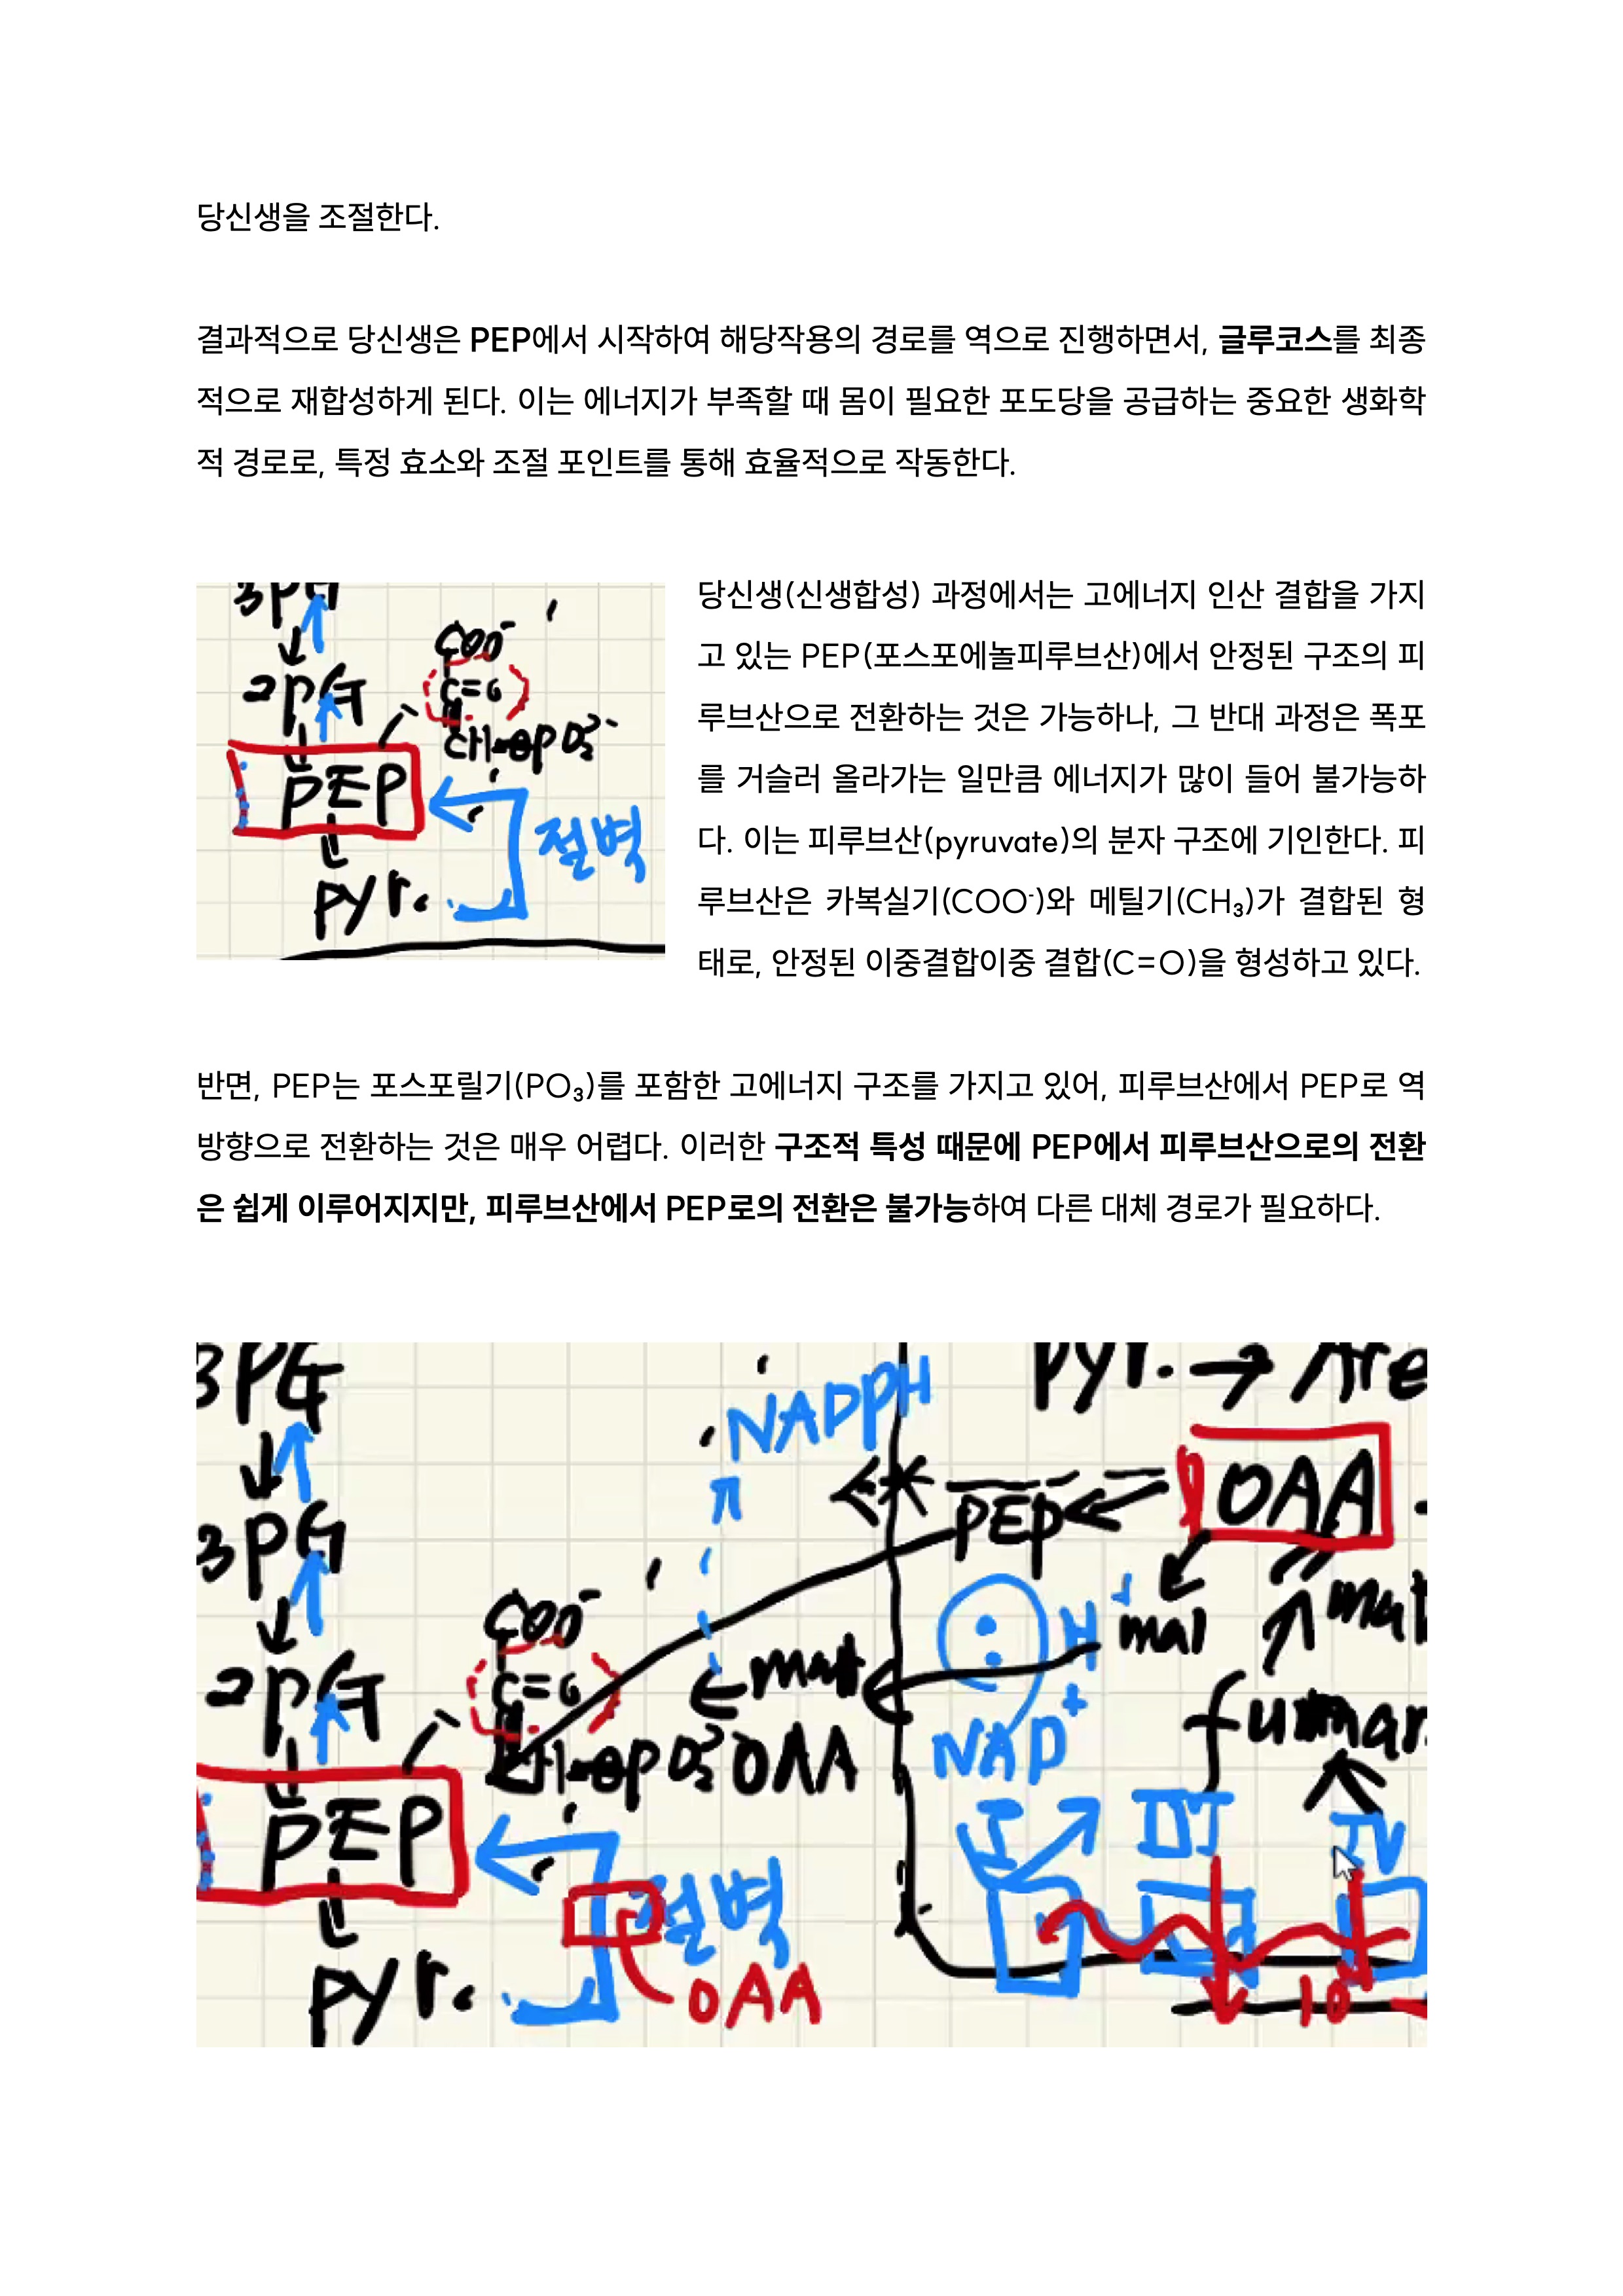 당신생을 조절한다.
결과적으로 당신생은 PEP에서 시작하여 해당작용의 경로를 역으로 진행하면서, 글루코스를 최종
적으로 재합성하게 된다. 이는 에너지가 부족할 때 몸이 필요한 포도당을 공급하는 중요한 생화학
적 경로로, 특정 효소와 조절 포인트를 통해 효율적으로 작동한다.
3PG
2PG
COO⁻
PEP
절벽
pyr.
당신생(신생합성) 과정에서는 고에너지 인산 결합을 가지
고 있는 PEP(포스포에놀피루브산)에서 안정된 구조의 피
루브산으로 전환하는 것은 가능하나, 그 반대 과정은 폭포
를 거슬러 올라가는 일만큼 에너지가 많이 들어 불가능하
다. 이는 피루브산(pyruvate)의 분자 구조에 기인한다. 피
루브산은 카복실기(COO⁻)와 메틸기(CH₃)가 결합된 형
태로, 안정된 이중결합이중 결합(C=O)을 형성하고 있다.
반면, PEP는 포스포릴기(PO₃)를 포함한 고에너지 구조를 가지고 있어, 피루브산에서 PEP로 역
방향으로 전환하는 것은 매우 어렵다. 이러한 구조적 특성 때문에 PEP에서 피루브산으로의 전환
은 쉽게 이루어지지만, 피루브산에서 PEP로의 전환은 불가능하여 다른 대체 경로가 필요하다.
3PG
NADPH
pyr. →
PEP ← OAA
3PG
2PG
COO⁻
mal
OAA
NAD⁺
H
PEP
I
III
IV
절벽
OAA
pyr.